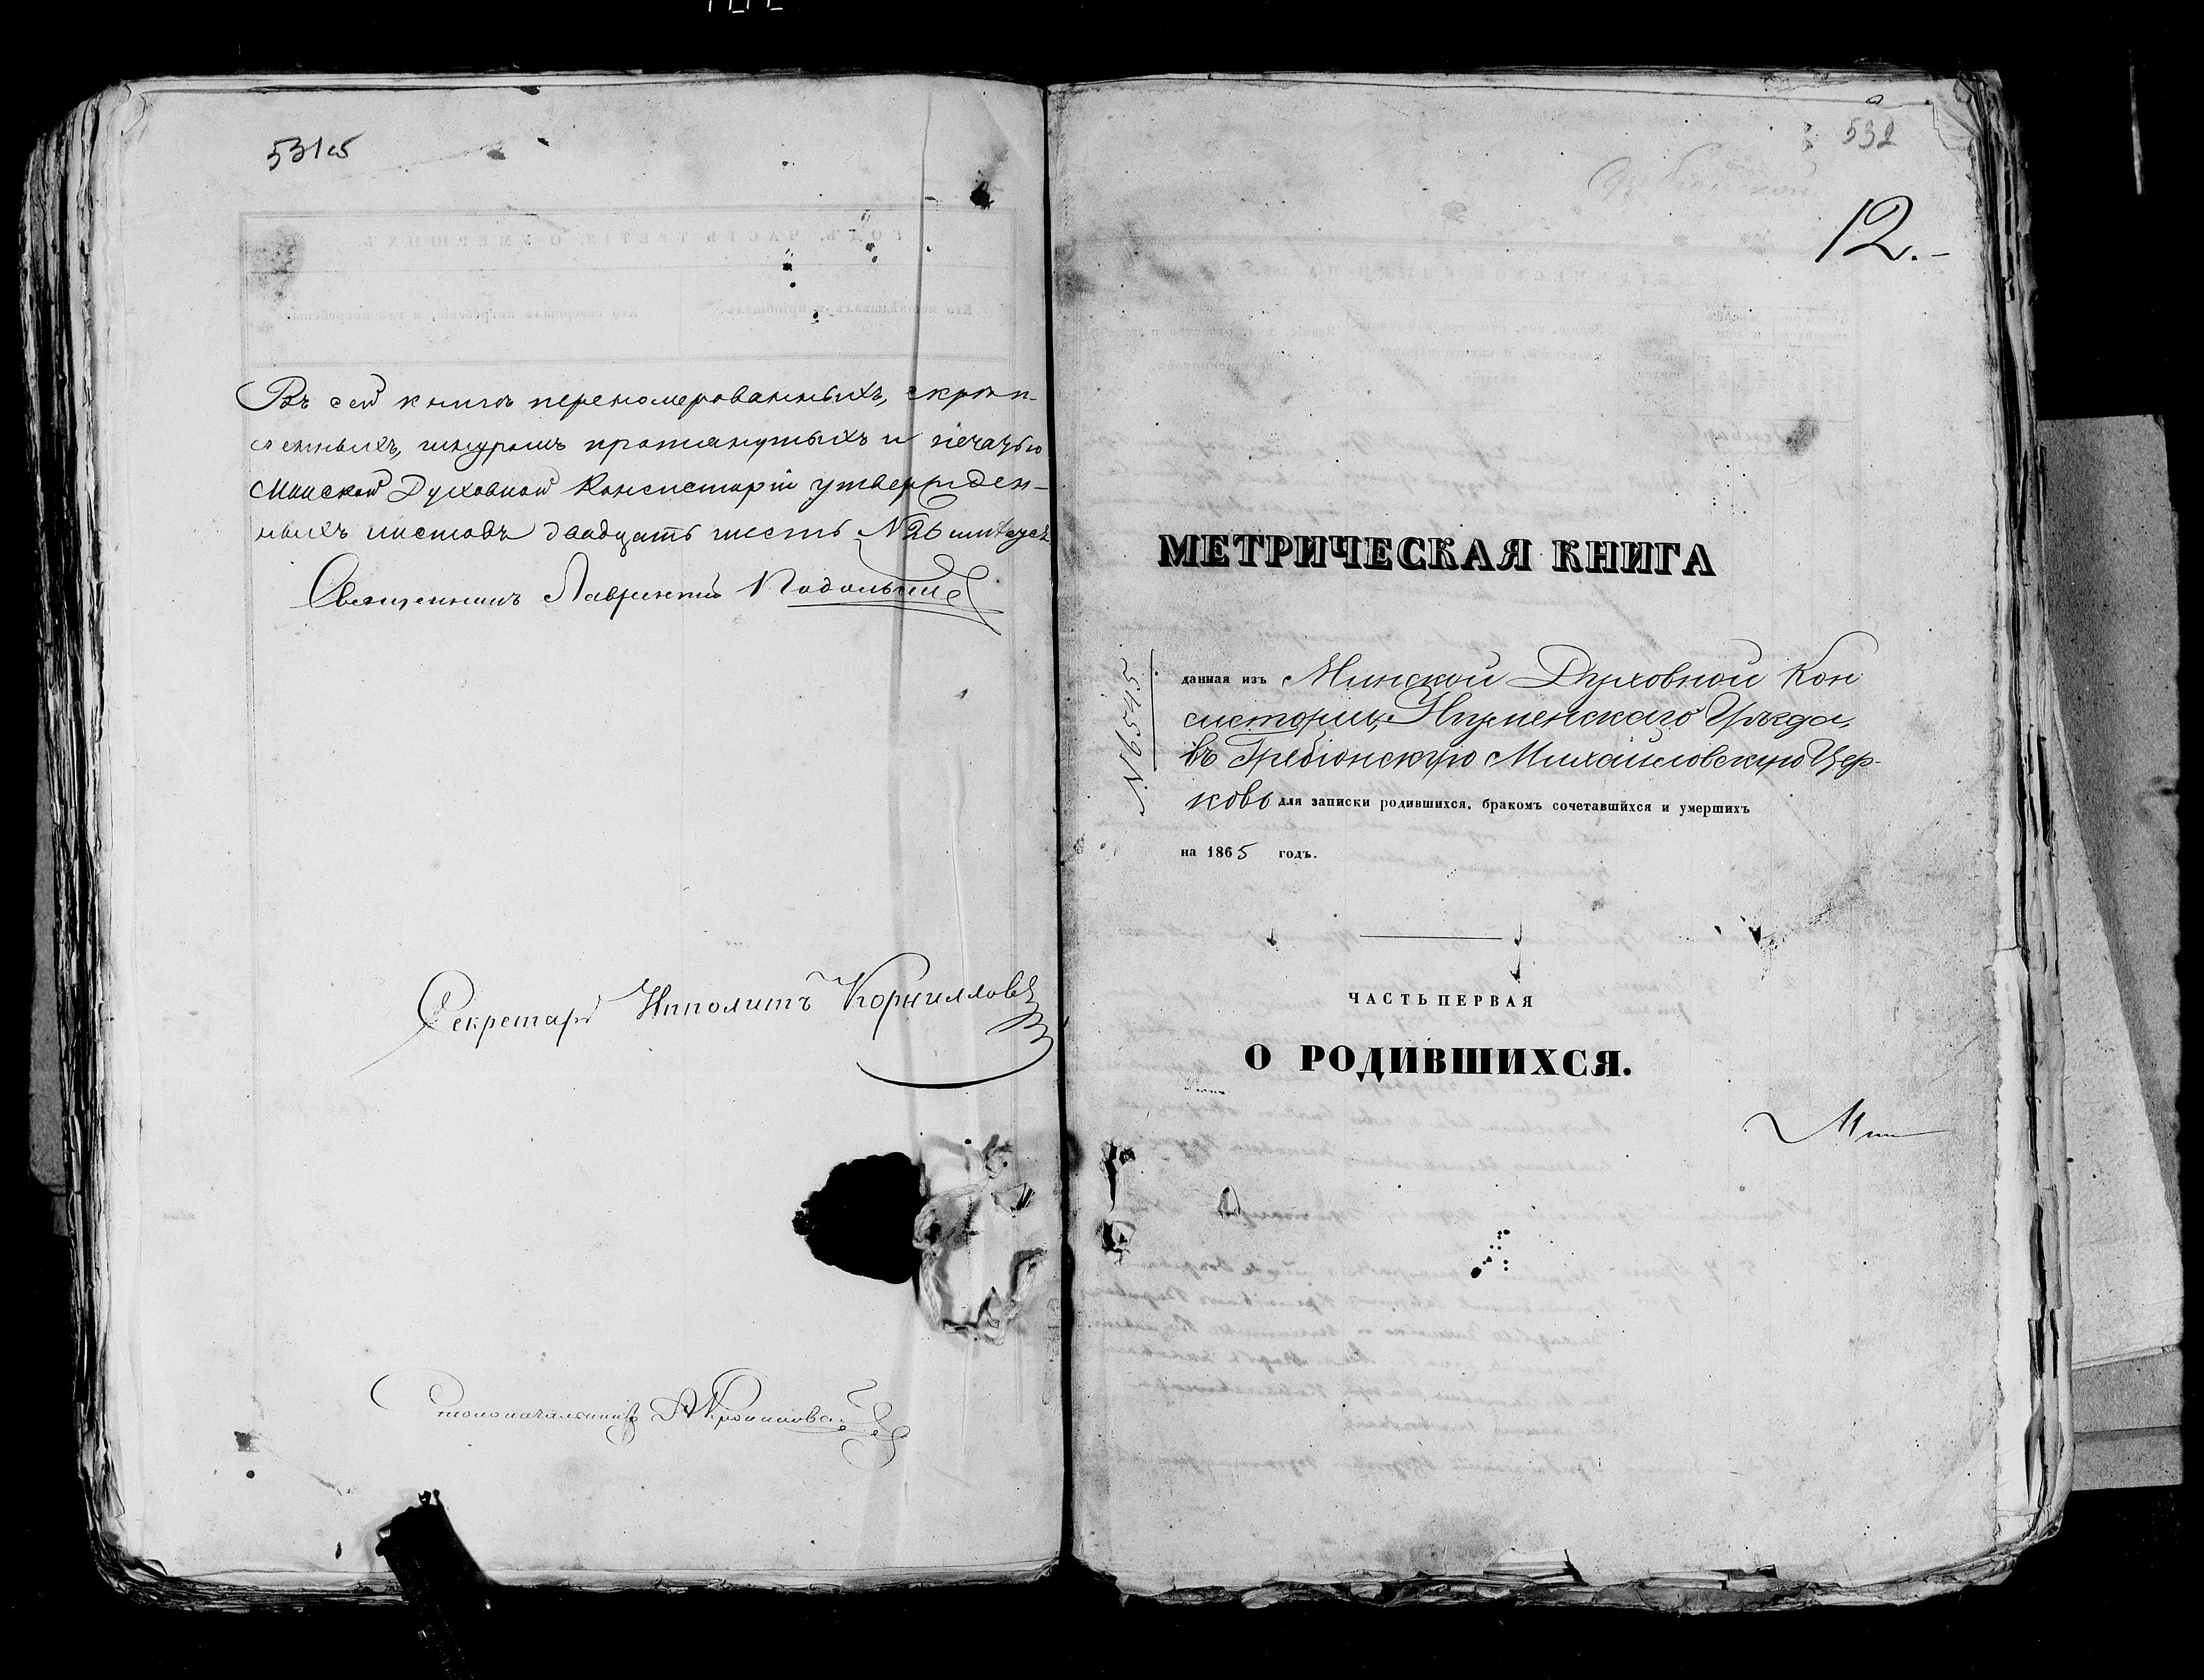 531об
Въ сей книгѣ переномерованныхъ, скрѣп-
ленныхъ, шнуромъ протянутыхъ и печатью
Минской Духовной Консисторіи утвержден-
ныхъ листовъ двадцать шесть N 26
Священникъ Лаврентій Подольскій
Секретарь Ипполитъ Корнилловъ
Столоначальникъ
532
12.-
МЕТРИЧЕСКАЯ КНИГА
№ 6545
данная изъ Минской Духовной Кон
систоріи, Игуменскаго Уѣзда,
въ Гребіонскую Михаиловскую Цер-
ковь для записки родившихся, бракомъ сочетавшихся и умершихъ
на 1865 годъ.
ЧАСТЬ ПЕРВАЯ
О РОДИВШИХСЯ.